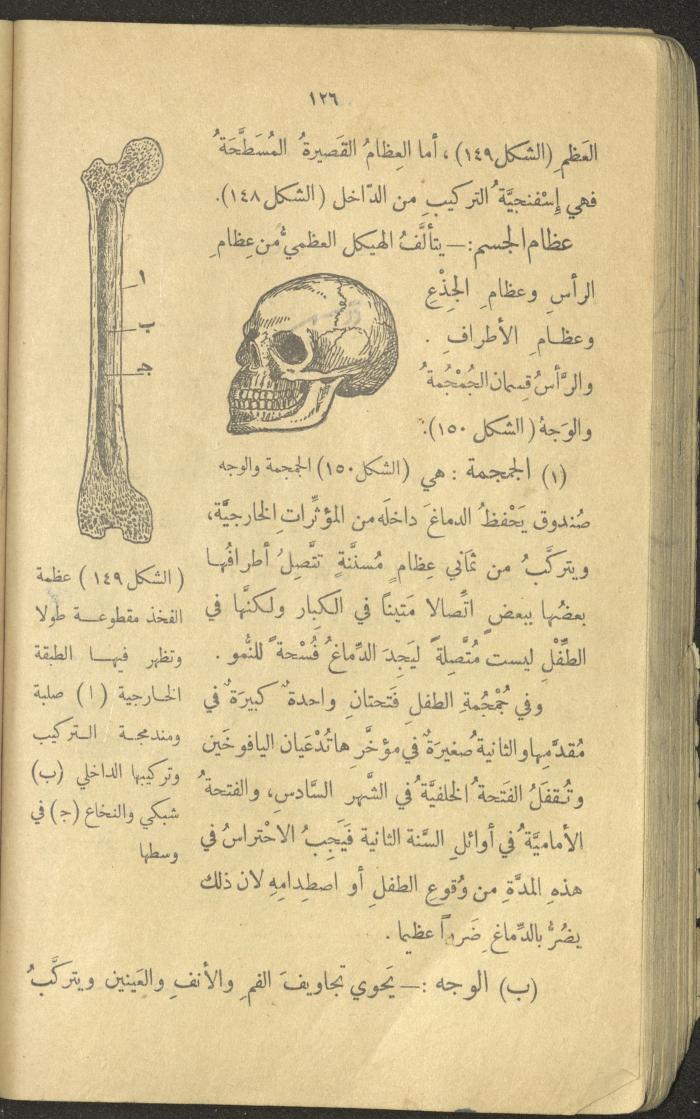 ١٢٦
العَظمِ (الشكل ١٤٩) ، أما العِظامُ القَصيرةُ المُسَطَّحَةُ
فهي إِسْفنجيَّةُ التركيبِ من الدّاخل (الشكل ١٤٨).
عظام الجسم: — يتألَّفُ الهيكل العظميُّ من عِظامِ
الرأسِ وعظامِ الجِذْعِ
وعظامِ الأطرافِ .
والرَّأسُ قِسمان الجُمْجُمةُ
والوَجهُ (الشكل ١٥٠).
(١) الجمجمة : هي
(الشكل ١٥٠) الجمجمة والوجه
صُندوق يَحْفظُ الدماغَ داخلَه من المؤثِّراتِ الخارجيَّة،
ويتركَّبُ من ثمَاني عِظامٍ مُسنَّنةٍ تتَّصِلُ أطرافُها
بعضُها ببعضٍ اتِّصالا مَتيناً في الكِبار ولكنَّها في
الطِّفْلِ ليست مُتَّصِلةً ليَجِدَ الدِّماغُ فُسْحةً للنُّمو .
وفي جُمْجُمةِ الطفلِ فَتحتانِ واحدةٌ كبيرَةٌ في
مُقدَّمِها والثانية صُغيرَةٌ في مؤخَّرِها تُدْعَيان اليافوخَين
وتُقفَلُ الفَتحةُ الخلفيَّةُ في الشَّهر السَّادسِ، والفتحةُ
الأماميَّةُ في أوائلِ السَّنة الثانية فَيَجِبُ الاحْتراسُ في
هذهِ المدَّةِ من وُقوعِ الطفلِ أو اصطِدامِهِ لان ذلك
يضُرُّ بالدِّماغِ ضَرراً عظيما .
(ب) الوجه : — يَحوي تجاويفَ الفمِ والأنفِ والعَينين ويتركَّبُ
ا
ب
ج
(الشكل ١٤٩) عظمة
الفخذ مقطوعة طولا
وتظهر فيها الطبقة
الخارجية (ا) صلبة
ومندمجة التركيب
وتركيبها الداخلي (ب)
شبكي والنخاع (ج) في
وسطها